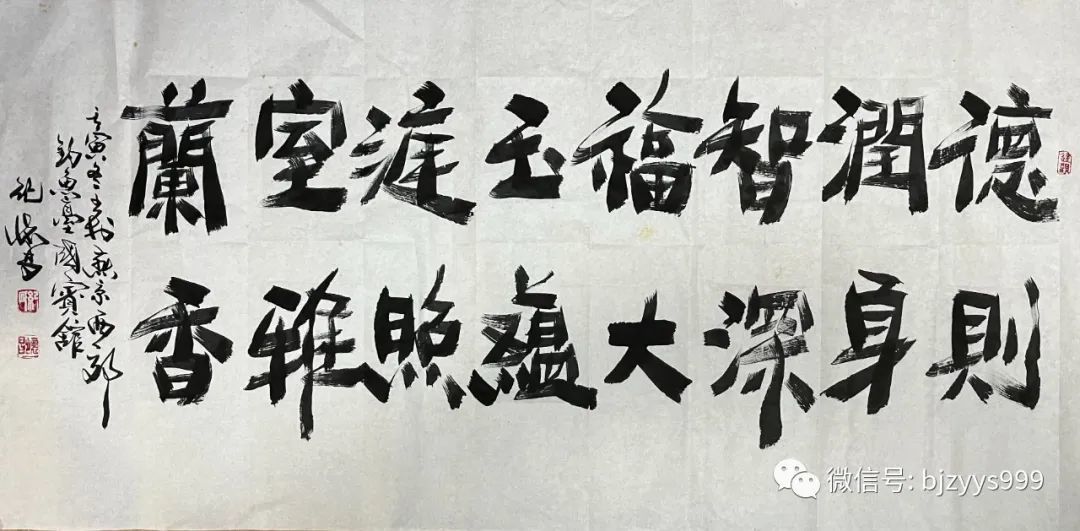 德則
潤身
智深
福大
玉蘊
涯照
室雅
蘭香
壬寅冬書於燕京西郊
釣魚臺國賓館
紀懷昌
微信号: bjzyys999